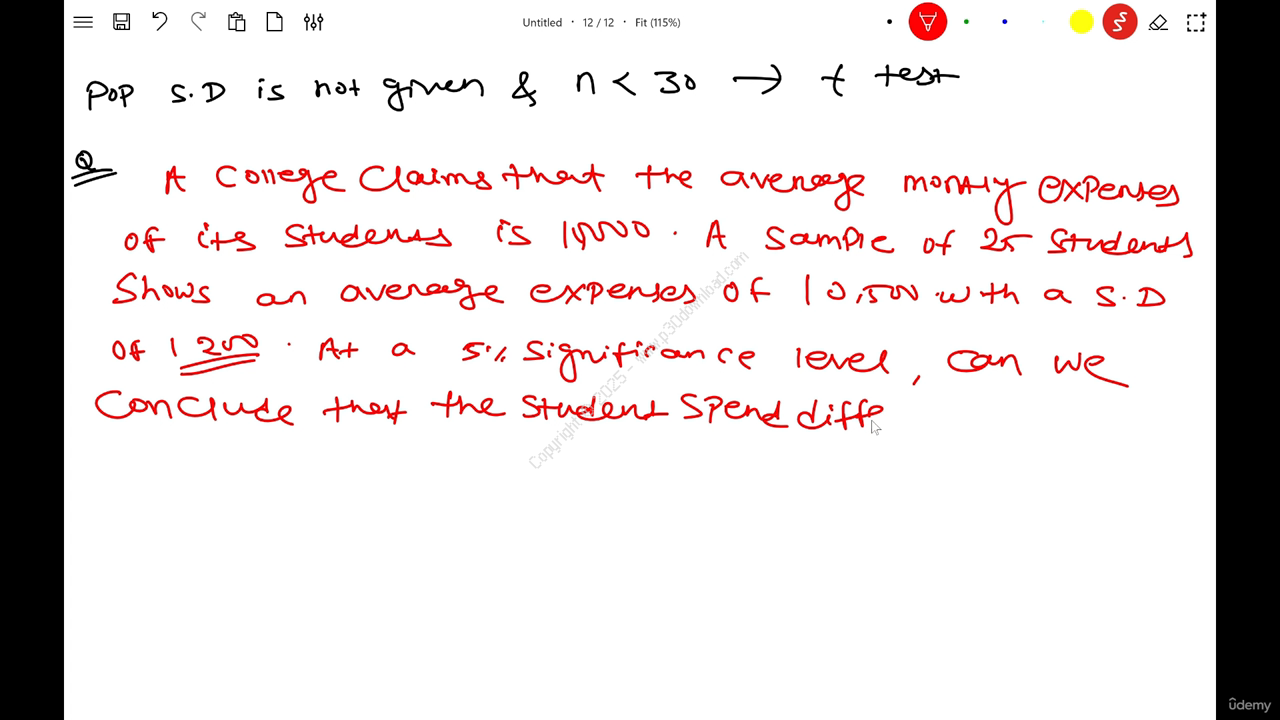 Untitled • 12 / 12 • Fit (115%)
Pop S.D is not given & n < 30 → t test
Q A College Claims that the average montly expenses
of its Students is 10,000. A Sample of 25 Students
Shows an average expenses of 10,500 with a S.D
of 1200. At a 5% Significance level, Can we
Conclude that the Student Spend diffe
Copyright © 2025 - www.p30download.com
ûdemy